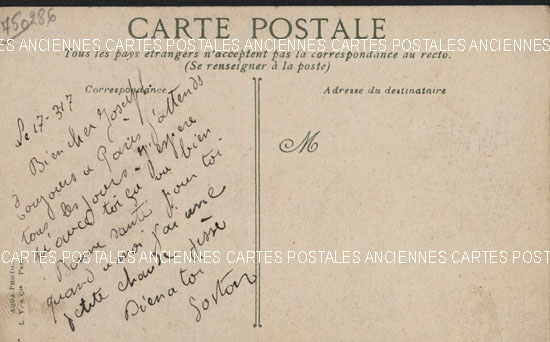 75286
CARTE POSTALE
Tous les pays étrangers n'acceptent pas la correspondance au recto.
(Se renseigner à la poste)
CARTES POSTALES ANCIENNES CARTES POSTALES ANCIENNES CARTES POSTALES ANCIENNES
Correspondance
Adresse du destinataire
M
Le 17-3-17
Bien cher Joseph
Toujours a Paris j'attends
tous les jours - j'espere
qu'avec toi ça va bien
Bonne santé pour toi
quand a moi j'ai une
petite chaude pisse
Bien a toi
Gaston
CARTES POSTALES ANCIENNES CARTES POSTALES ANCIENNES CARTES POSTALES ANCIENNES
AQUA-PHOTO